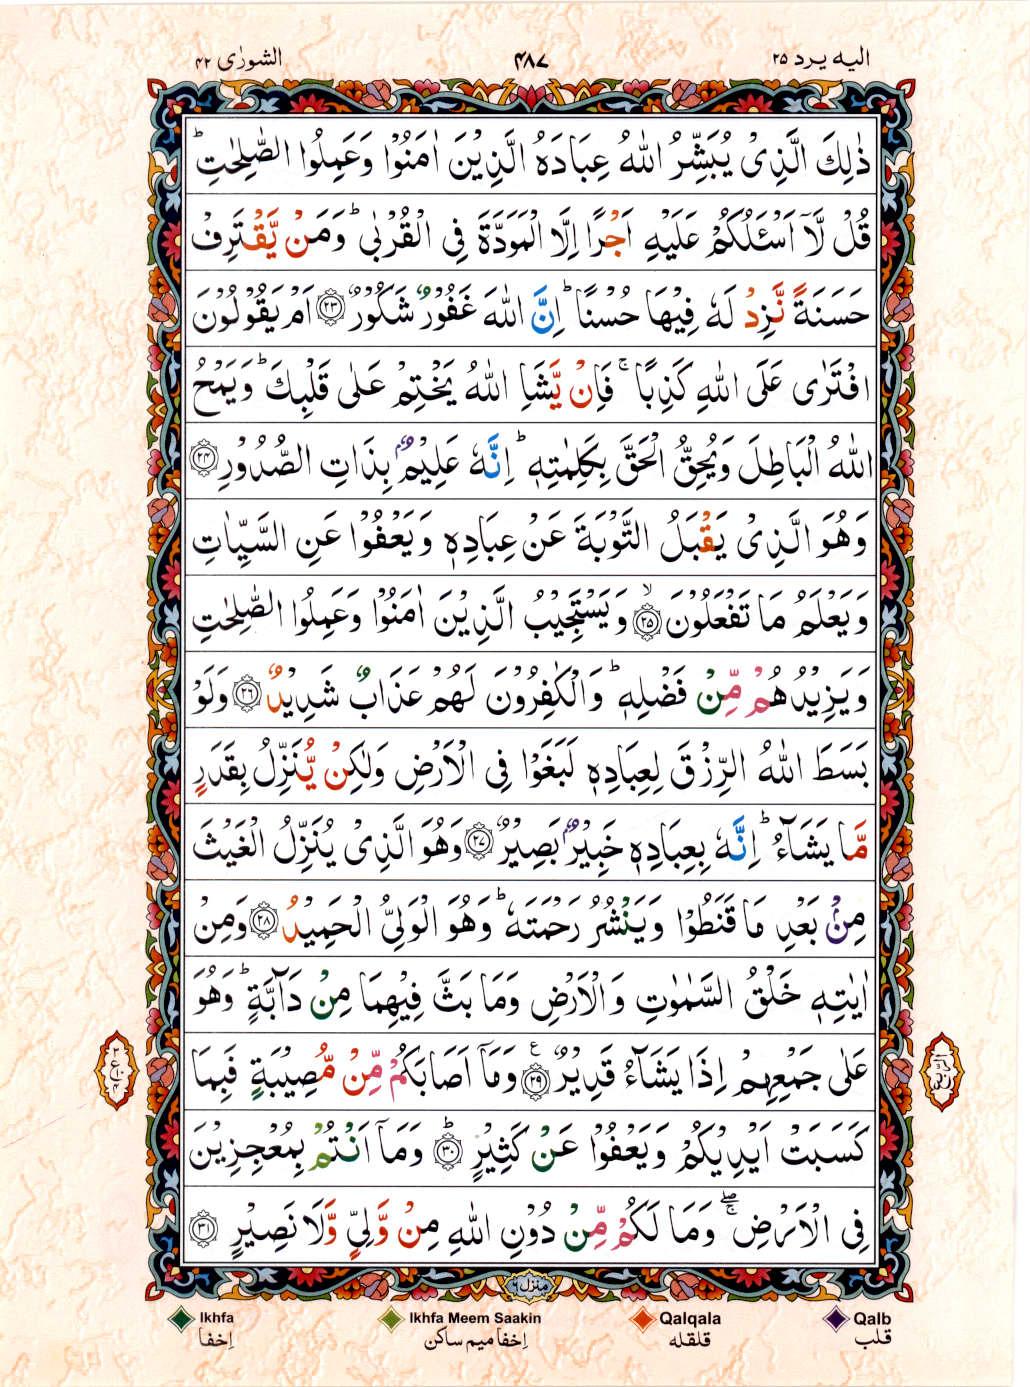 الشورٰى ۴۲ ۴۸۷ اليه يرد ۲۵
ذٰلِكَ الَّذِىۡ يُبَشِّرُ اللّٰهُ عِبَادَهُ الَّذِيۡنَ اٰمَنُوۡا وَعَمِلُوا الصّٰلِحٰتِ‌ؕ
قُلْ لَّاۤ اَسۡـَٔـلُكُمۡ عَلَيۡهِ اَجۡرًا اِلَّا الۡمَوَدَّةَ فِى الۡقُرۡبٰى‌ؕ وَمَنۡ يَّقۡتَرِفۡ
حَسَنَةً نَّزِدۡ لَهٗ فِيۡهَا حُسۡنًا‌ؕ اِنَّ اللّٰهَ غَفُوۡرٌ شَكُوۡرٌ ‏﴿۲۳﴾ اَمۡ يَقُوۡلُوۡنَ
افۡتَـرٰى عَلَى اللّٰهِ كَذِبًا‌ۚ فَاِنۡ يَّشَاِ اللّٰهُ يَخۡتِمۡ عَلٰى قَلۡبِكَ‌ؕ وَيَمۡحُ
اللّٰهُ الۡبَاطِلَ وَيُحِقُّ الۡحَقَّ بِكَلِمٰتِهٖ‌ؕ اِنَّهٗ عَلِيۡمٌۢ بِذَاتِ الصُّدُوۡرِ ‏﴿۲۴﴾
وَهُوَ الَّذِىۡ يَقۡبَلُ التَّوۡبَةَ عَنۡ عِبَادِهٖ وَيَعۡفُوۡا عَنِ السَّيِّاٰتِ
وَيَعۡلَمُ مَا تَفۡعَلُوۡنَۙ ‏﴿۲۵﴾ وَيَسۡتَجِيۡبُ الَّذِيۡنَ اٰمَنُوۡا وَعَمِلُوا الصّٰلِحٰتِ
وَيَزِيۡدُهُمۡ مِّنۡ فَضۡلِهٖ‌ؕ وَالۡكٰفِرُوۡنَ لَهُمۡ عَذَابٌ شَدِيۡدٌ ‏﴿۲۶﴾ وَلَوۡ
بَسَطَ اللّٰهُ الرِّزۡقَ لِعِبَادِهٖ لَبَغَوۡا فِى الۡاَرۡضِ وَلٰكِنۡ يُّنَزِّلُ بِقَدَرٍ
مَّا يَشَآءُ‌ؕ اِنَّهٗ بِعِبَادِهٖ خَبِيۡرٌۢ بَصِيۡرٌ ‏﴿۲۷﴾ وَهُوَ الَّذِىۡ يُنَزِّلُ الۡغَيۡثَ
مِنۡۢ بَعۡدِ مَا قَنَطُوۡا وَيَنۡشُرُ رَحۡمَتَهٗ‌ؕ وَهُوَ الۡوَلِىُّ الۡحَمِيۡدُ ‏﴿۲۸﴾ وَمِنۡ
اٰيٰتِهٖ خَلۡقُ السَّمٰوٰتِ وَالۡاَرۡضِ وَمَا بَثَّ فِيۡهِمَا مِنۡ دَآبَّةٍ‌ؕ وَهُوَ
عَلٰى جَمۡعِهِمۡ اِذَا يَشَآءُ قَدِيۡرٌ ‏﴿۲۹﴾ ع وَمَاۤ اَصَابَكُمۡ مِّنۡ مُّصِيۡبَةٍ فَبِمَا
كَسَبَتۡ اَيۡدِيۡكُمۡ وَيَعۡفُوۡا عَنۡ كَثِيۡرٍؕ ‏﴿۳۰﴾ وَمَاۤ اَنۡتُمۡ بِمُعۡجِزِيۡنَ
فِى الۡاَرۡضِ ‌ۖۚ وَمَا لَكُمۡ مِّنۡ دُوۡنِ اللّٰهِ مِنۡ وَّلِىٍّ وَّلَا نَصِيۡرٍ ‏﴿۳۱﴾
منزل ۶
Ikhfa Ikhfa Meem Saakin Qalqala Qalb
اِخفا اِخفا میم ساکن قلقله قلب